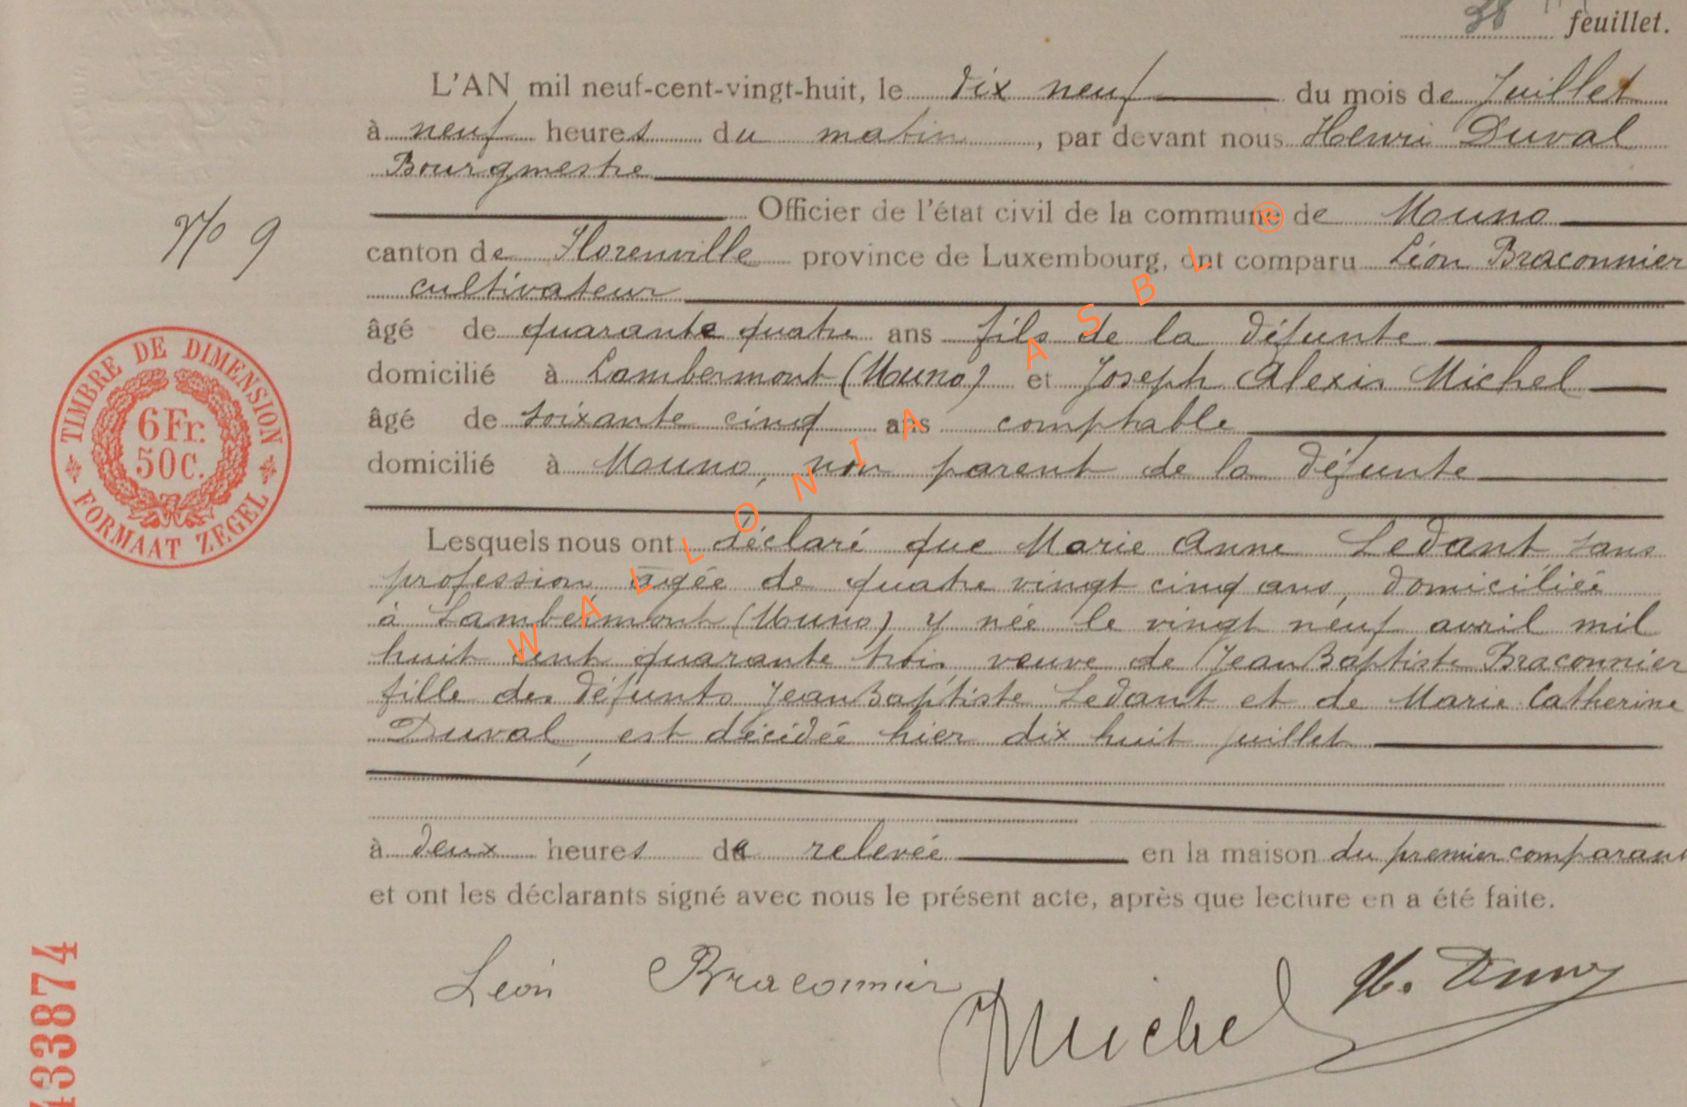 feuillet.
L'AN mil neuf-cent-vingt-huit, le dix neuf du mois de Juillet
à neuf heures du matin, par devant nous Henri Duval
Bourgmestre
Officier de l'état civil de la commune de Muno
No 9
canton de Florenville province de Luxembourg, ont comparu Léon Braconnier
cultivateur
âgé de quarante quatre ans fils de la défunte
domicilié à Lambermont (Muno) et Joseph Alexis Michel
âgé de soixante cinq ans comptable
domicilié à Muno, non parent de la défunte
TIMBRE DE DIMENSION
6Fr.
50C.
FORMAAT ZEGEL
Lesquels nous ont déclaré que Marie Anne Ledant sans
profession âgée de quatre vingt cinq ans, domiciliée
à Lambermont (Muno) y née le vingt neuf avril mil
huit cent quarante trois veuve de Jean Baptiste Braconnier
fille des défunts Jean Baptiste Ledant et de Marie Catherine
Duval, est décédée hier dix huit juillet
à deux heures de relevée en la maison du premier comparant
et ont les déclarants signé avec nous le présent acte, après que lecture en a été faite.
Léon Braconnier
JMichel
H. Duval
433874
WALLONIA ASBL ®